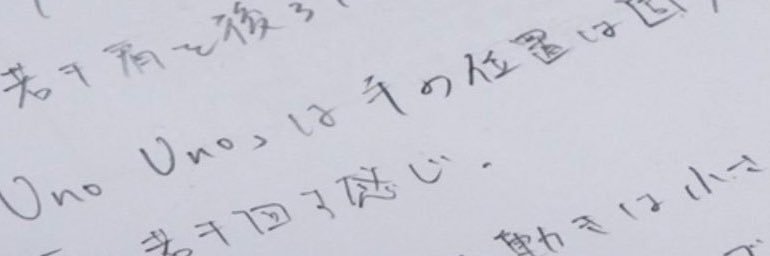 若干肩を後ろ
Uno Uno,は手の位置は固
若干回る感じ.
動きは小さ